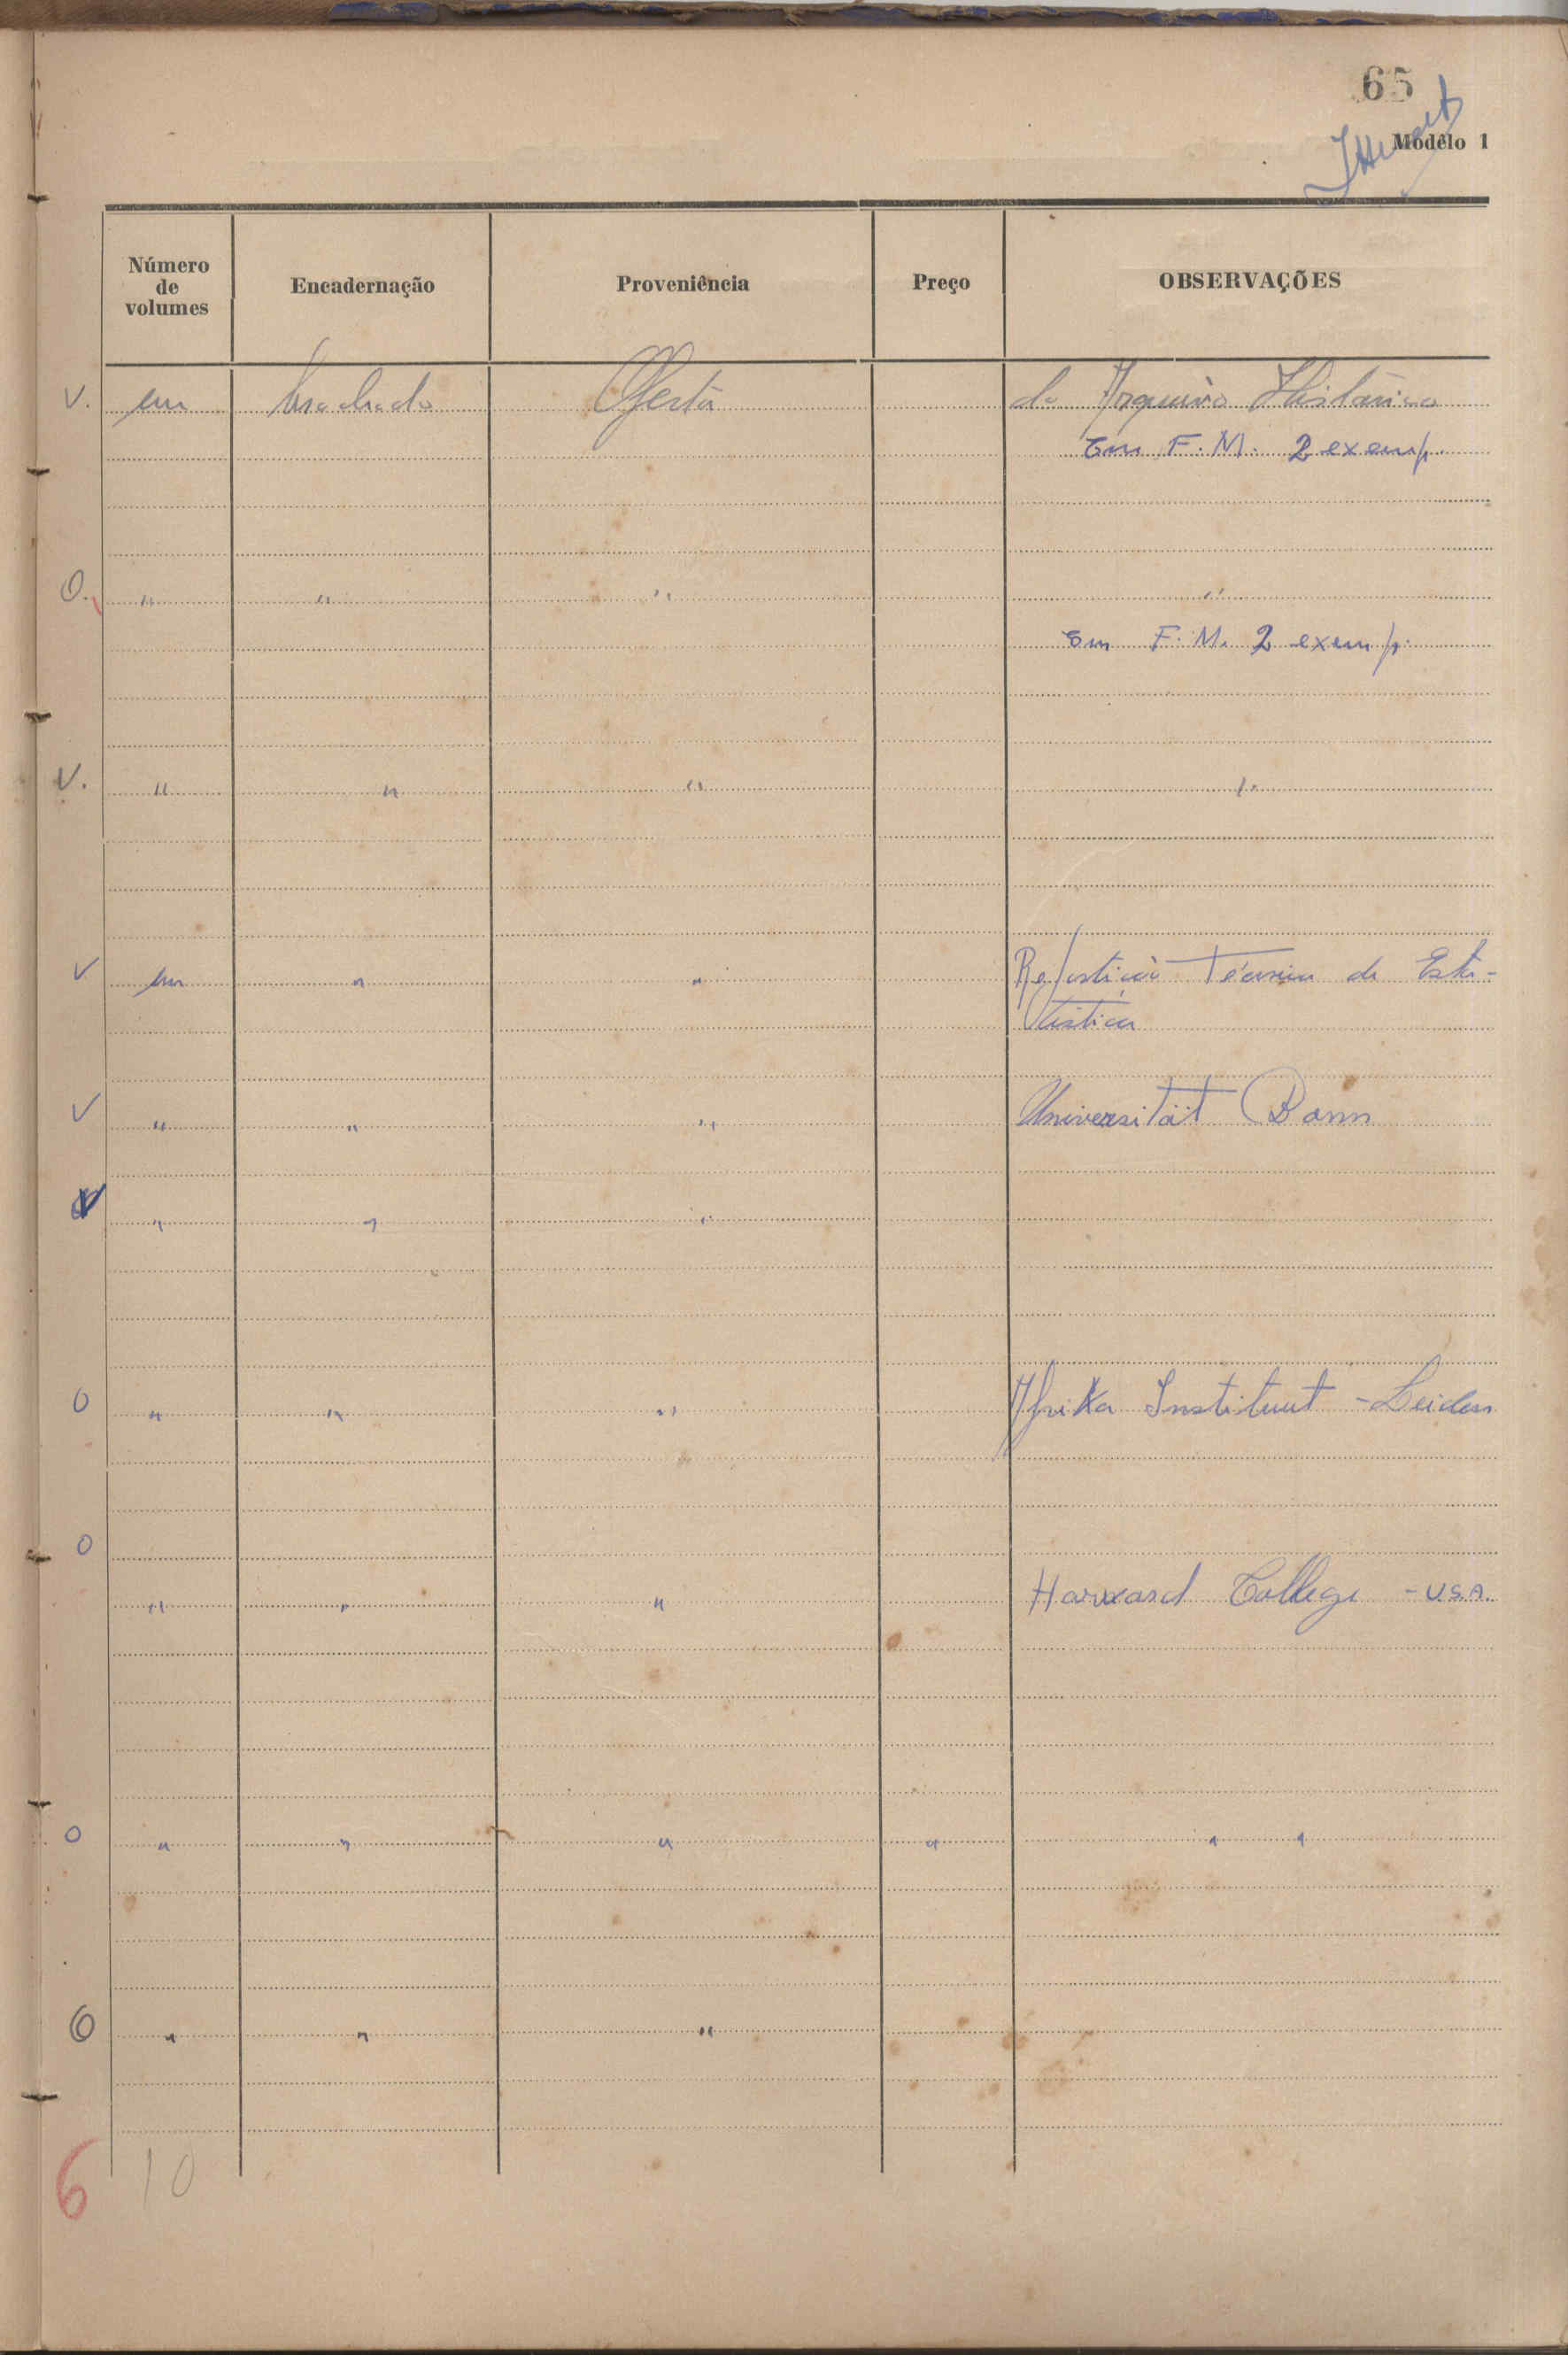 65
Modêlo 1
Número de volumes Encadernação Proveniência Preço OBSERVAÇÕES
V. um brochado Oferta do Arquivo Histórico
Em F. M. 2 exemp.
O. " " " "
Em F. M. 2 exemp.
V. " " " "
V um " " Repartição Técnica de Esta-
tística
V " " " Universität Bonn
V " " "
O " " " Afrika Instituut - Leiden
O
" " " Harvard College - U.S.A.
O " " " " " "
O " " "
6 10